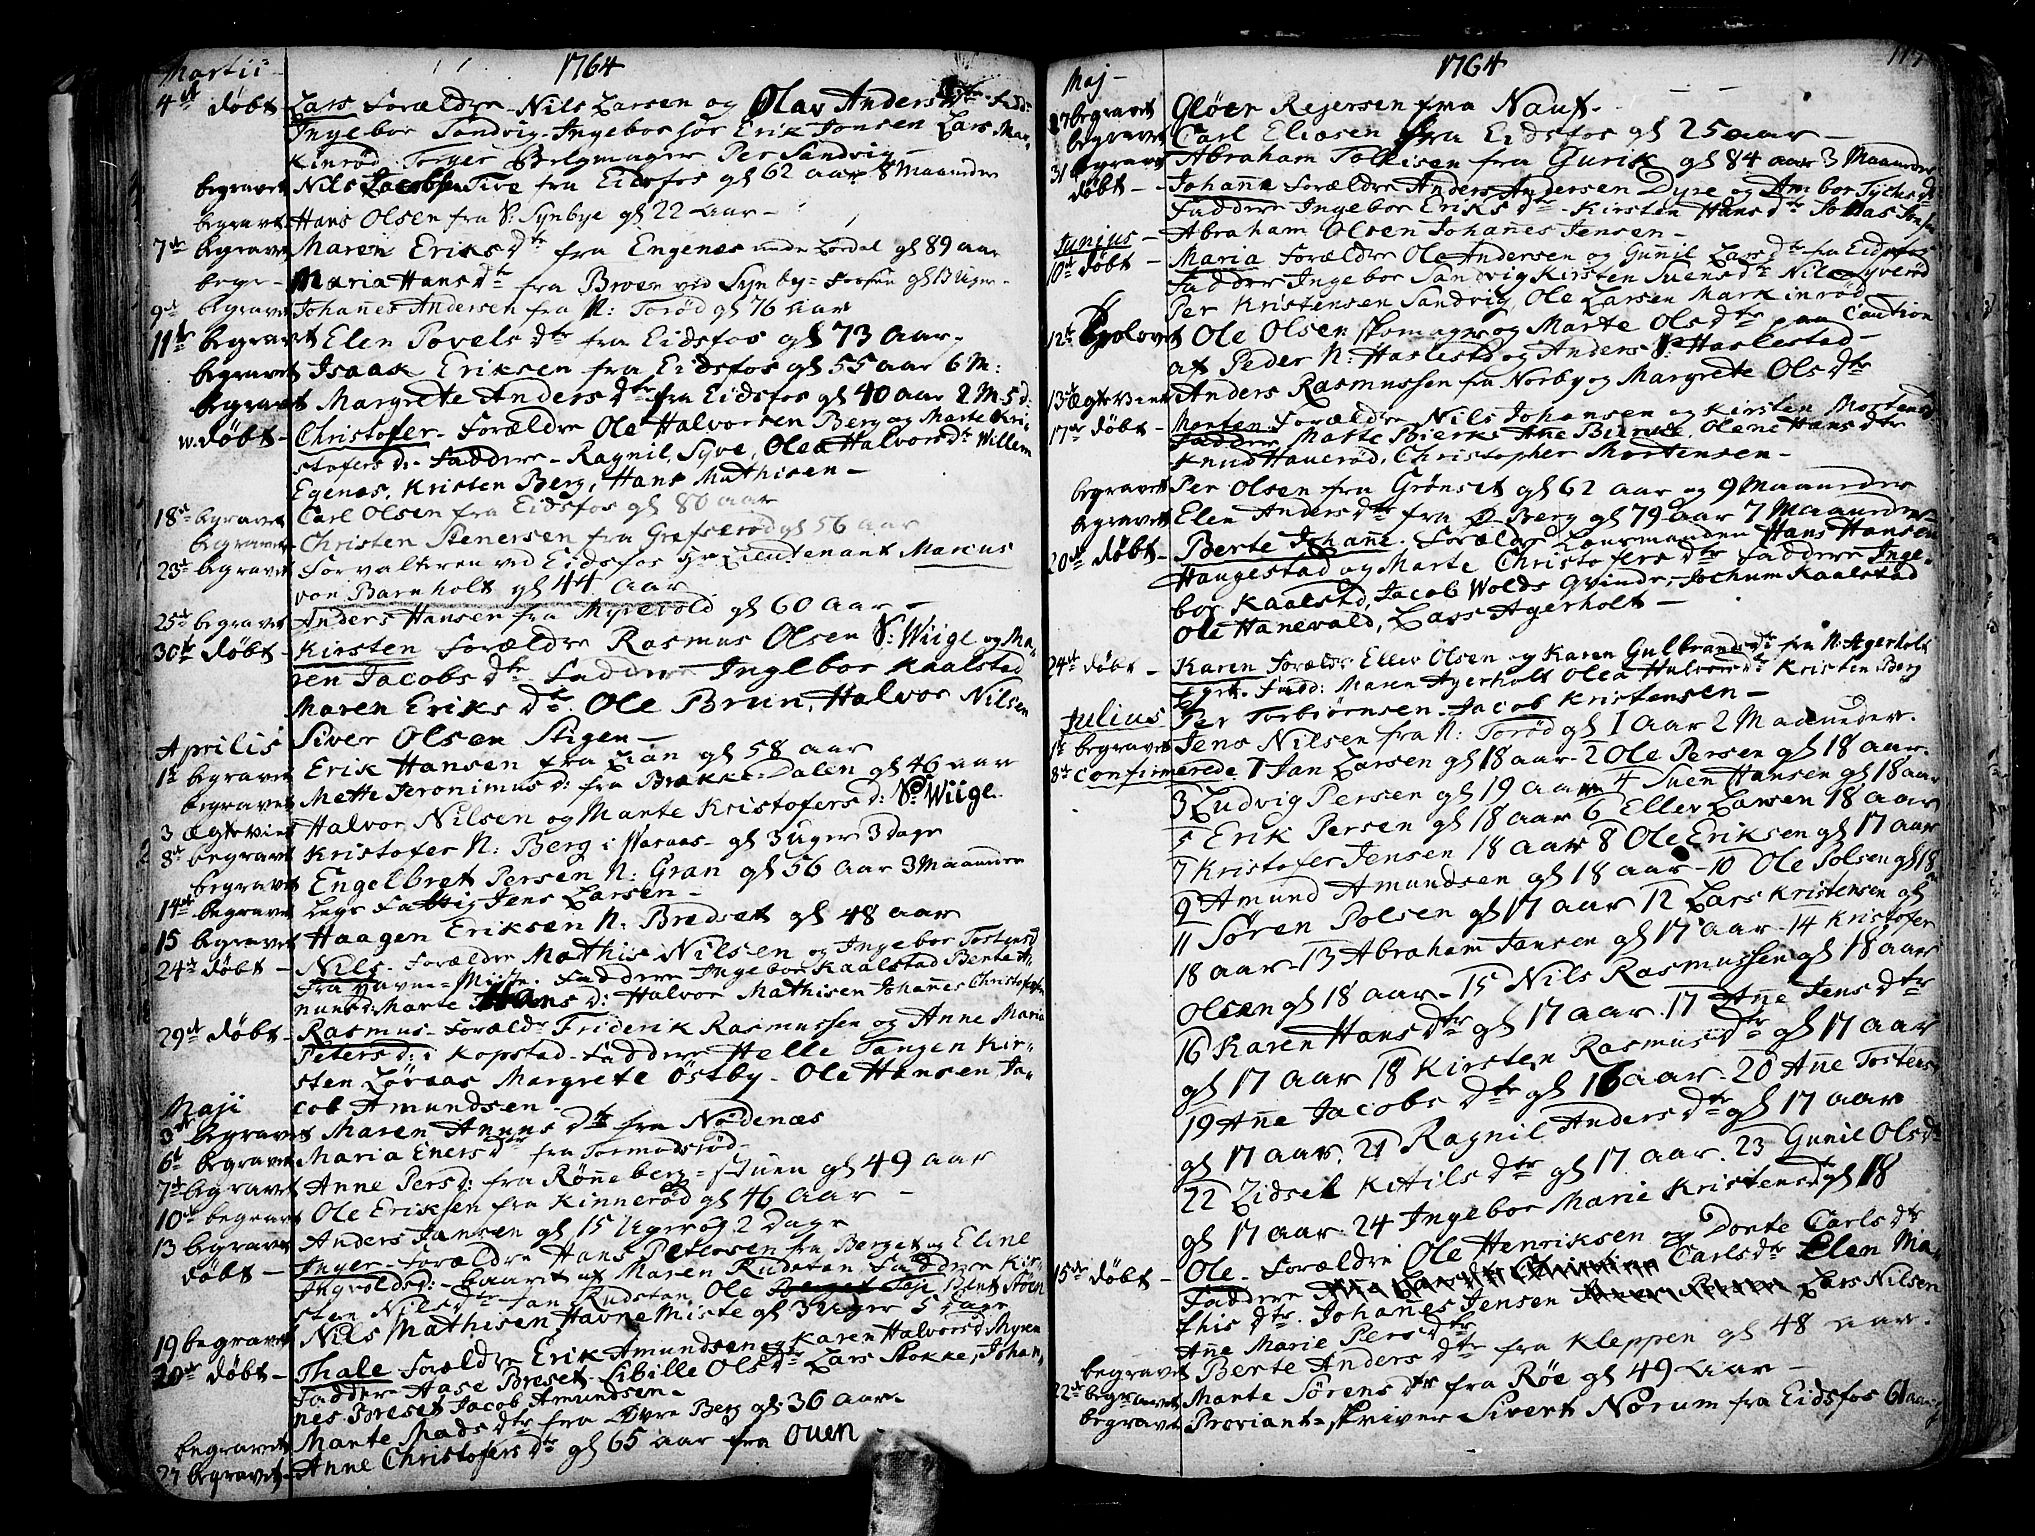 Martii
1764
4de døbt Lars Forældre Nils Larsen og Olav Anders dtr Fadd:
Ingebor Sandvig. Ingebor sør Erik Jonsen Lars Mar-
kinrød. Torger Belgmager Per Sandvig
begravet Nils Jacobsen Tive fra Eidsfos gl 62 aar 8 Maaneder
begravet Hans Olsen fra S: Synbye gl 22 aar
7de begravet Maren Eriks dtr fra Engenæs gl 89 aar
begr- Maria Hans dtr fra Broen ved Synby gl 13 Uger
9de begravet Johannes Andersen fra N: Torød gl 76 aar
11te begravet Elen Povels dtr fra Eidsfos gl 73 aar.
begravet Isaak Eriksen fra Eidsfos gl 55 aar 6 M:
begravet Margrete Anders dtr fra Eidsfos gl 40 aar 2 M: 5 d:
døbt Christofer Forældre Ole Halvorsen Berg og Marte Kri-
stofers d: Faddere Ragnil Syve, Olea Halvors dtr Willem
Egenæs, Kristen Berg, Hans Mathisen
18de begravet Carl Olsen fra Eidsfos gl 80 aar
begravet Christen Stenersen fra Grefserød gl 56 aar
23de begravet Forvalteren ved Eidsfos Hr Lieutenant Marcus
von Barnholt gl 44 aar
25de begravet Anders Hansen fra Myrevold gl 60 aar
30te døbt Kirsten Forældre Rasmus Olsen S: Wiige og Ma-
ren Jacobs dtr Faddere Ingebor Kaalstad
Maren Eriks dtr. Ole Brun, Halvor Nilsen
Siver Olsen Stigen
Aprilis
1te begravet Erik Hansen fra Lian gl 58 aar
begravet Mette Jeronimus d: fra Brække-Dalen gl 46 aar
3 Ægteviet Halvor Nilsen og Mante Kristofers d: S: Wiige
8de begravet Kristofer N: Berg gl 3 uger 3 dage
begravet Engelbret Persen N: Gran gl 56 aar 3 Maaneder
14de begravet Legs Fattig Jens Larsen
15 begravet Haagen Eriksen N: Bredset gl 48 aar
24de døbt Nils Forældre Mathis Nilsen og Ingebor Tostens d
fra Havne-Miste. Faddere Ingebor Kaalstad Berte A-
nuns d: Marte Hans d: Halvor Mathisen Johannes Christofersen
29de døbt Rasmus Foreld: Friderik Rasmussen og Anne Maria
Peters d: i Kopstad Faddere Helle Tangen Kir-
sten Løraas Margrete Østby. Ole Hansen Ja-
cob Amundsen
Maji
3de begravet Maren Anuns dtr fra Nødenæs
6te begravet Maria Eners dtr fra Tormodsrød
7de begravet Anne Pers d: fra Rønneberg gl 49 aar
10de begravet Ole Eriksen fra Kinnerød gl 46 aar
13 begravet Anders Jansen gl 15 Uger og 2 Dage
døbt Inger Forældre Hans Petersen fra Berget og Eline
Ingvolds d: baaret af Maren Rustan Faddere Kir-
sten Nils dtr Jan Rustan, Ole Bent Støen
19 begravet Nils Mathisen Havne Miste gl 3 Uger 5 Dage
20de døbt Thale Forældre Erik Amundsen og Karen Halvors d Myren
Fadder Aase Breset. Sibille Ols dtr Lars Stokke, Johan-
nes Breset Jacob Amundsen
begravet Mante Mads dtr fra Øvre Berg gl 36 aar
27 begravet Anne Christofers dtr gl 65 aar fra Ouen
Maj
1764
27 begravet Gløer Rejersen fra Nauf.
begravet Carl Eliasen fra Eidsfos gl 25 aar
31 begravet Abraham Tollisen fra Gurik gl 84 aar 3 Maaneder
døbt Johanne Forældre Anders Andersen Dyre og Ambor Tychs d
Faddere Ingebor Eriks dtr Kirsten Hans dtr Jonas
Abraham Olsen Johannes Jensen
Junius
10de døbt Maria Forældre Ole Andersen og Gunnil Lars dtr fra Eidsfos
Faddere Ingebor Sandvig Kirsten Suens dtr Nils Syverød
Per Kristensen Sandvig, Ole Larsen Markinrød
12te trolovet Ole Olsen skomager og Marte Ols dtr paa Caution
af Peder N: Haslestad og Anders S: Haslestad
13de Ægteviet Anders Rasmussen fra Norby og Margrete Ols dtr
17de døbt Morten Forældre Nils Johansen og Kirsten Mortens d
Faddere Matte Bierke Anne Bierke. Olene Hans dtr
Knud Hauerød, Christopher Mortensen
begravet Per Olsen fra Grønset gl 62 aar og 9 Maaneder
begravet Elen Anders dtr fra Ø Berg gl 79 aar 7 Maaneder
20de døbt Berte Johanne. Forældre Lensmanden Hans Hansen
Haugestad og Marte Christofers dtr Faddere Inge-
bor Kaalstad, Jacob Wolds Qvinde, Jochum Kaalstad
Ole Hanevald, Lars Agerholt
24de døbt Karen Foreldr: Eller Olsen og Karen Gulbrands dtr fra N: Agerholt
Fadd: Maren Agerholt Olea Halvors dtr Kristen Berg
Per Torbiørnsen. Jacob Kristensen
Julius
1te begravet Jens Nilsen fra N: Torød gl 1 aar 2 Maaneder.
8de confirmerede 1 Jan Larsen gl 18 aar 2 Ole Persen gl 18 aar.
3 Ludvig Persen gl 19 aar 4 Suen Hansen gl 18 aar
5 Erik Persen gl 18 aar 6 Eller Larsen 18 aar
7 Kristofer Jensen 18 aar 8 Ole Eriksen gl 17 aar
9 Amund Amundsen gl 18 aar 10 Ole Polsen gl 18
11 Søren Polsen gl 17 aar 12 Lars Kristensen gl
18 aar 13 Abraham Jansen gl 17 aar 14 Kristofer
Olsen gl 18 aar 15 Nils Rasmussen gl 18 aar
16 Karen Hans dtr gl 17 aar. 17 Anne Jens dtr
gl 17 aar 18 Kirsten Rasmus dtr gl 17 aar
19 Anne Jacobs dtr gl 16 aar 20 Anne Tostens
gl 17 aar. 21 Ragnil Anders dtr gl 17 aar
22 Zidsel Ketils dtr gl 17 aar. 23 Gunil Ols dtr
gl 17 aar. 24 Ingebor Marie Kristens d gl 18
15de døbt Ole Forældre Ole Henriksen og Dorte Carls dtr
Faddere Carls dtr Elen Ma-
this dtr. Johannes Jensen Lars Nilsen
Anne Marie Pers dtr
begravet Berte Anders dtr fra Kleppen gl 48 aar.
22de begravet Mante Sørens dtr fra Røe gl 49 aar
begravet Proviant-skriver Sivert Norum fra Eidsfos 61 aar